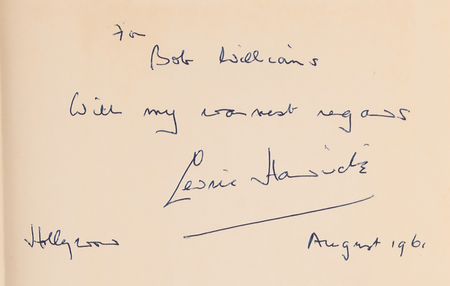 For
Bob Williams
With my warmest regards
Cedric Hardwicke
Hollywood August 1961